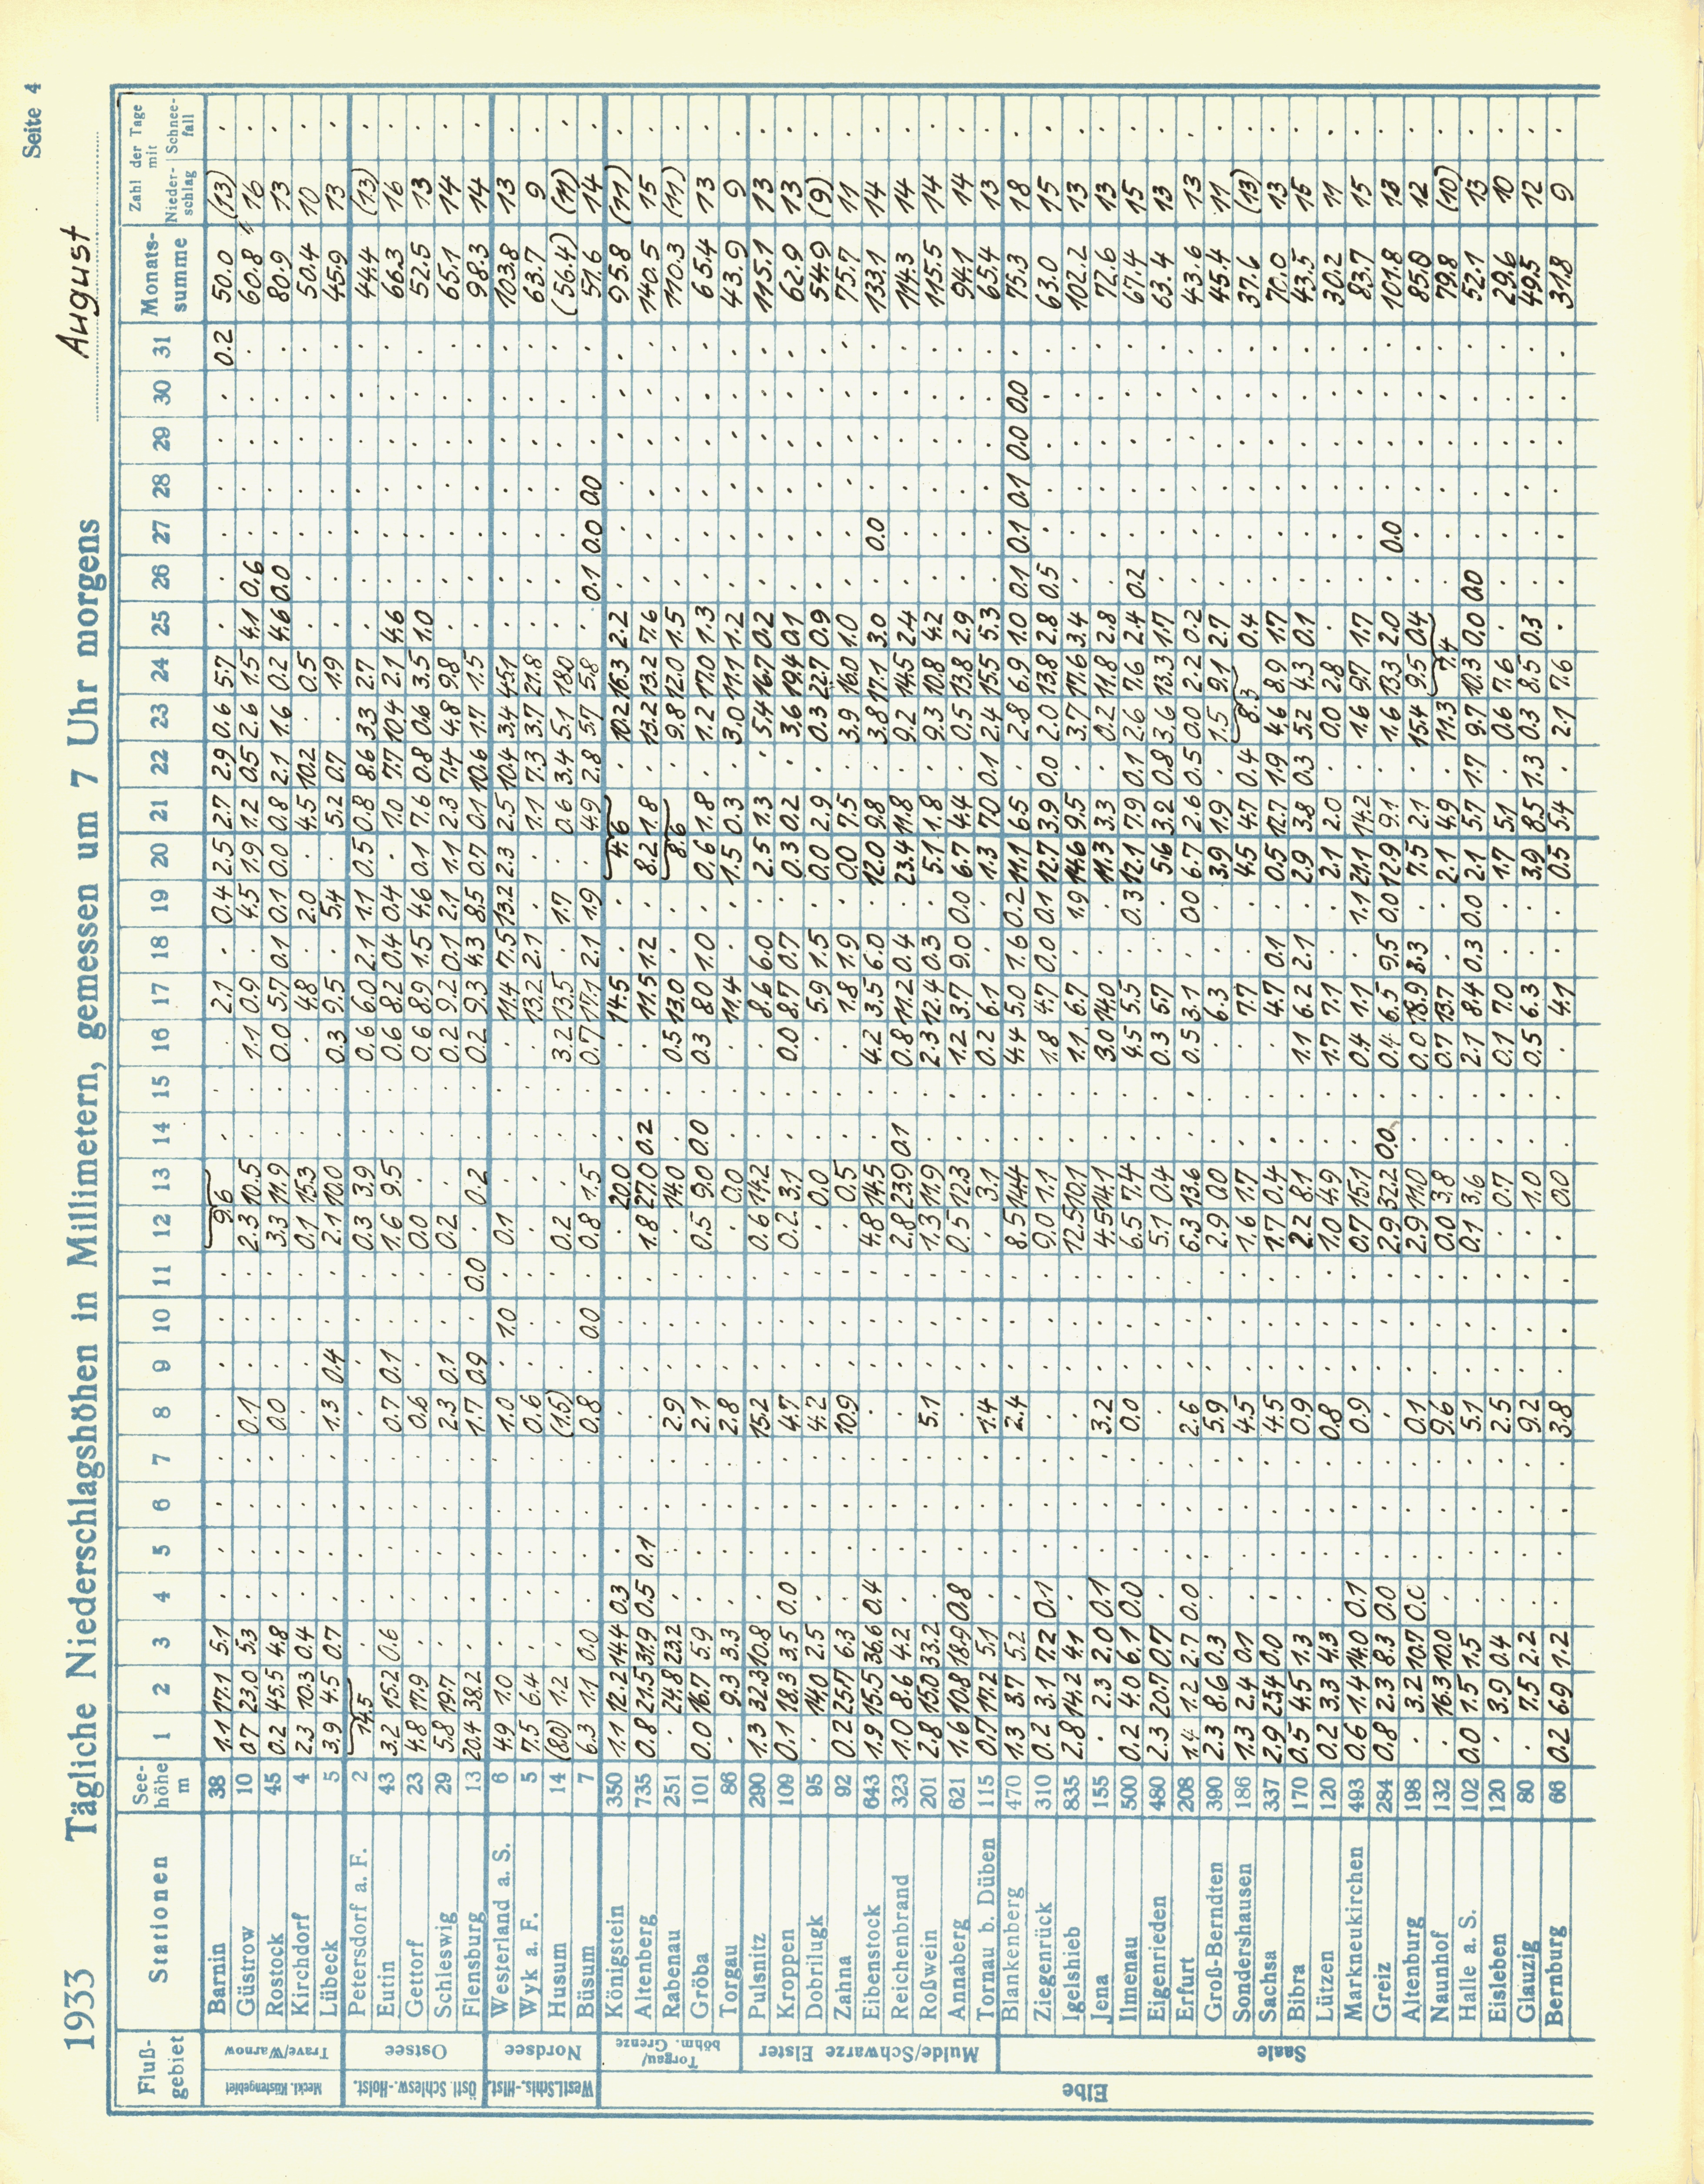 Seite 4
1933 Tägliche Niederschlagshöhen in Millimetern, gemessen um 7 Uhr morgens August
Fluß-gebiet Stationen See-höhe m 1 2 3 4 5 6 7 8 9 10 11 12 13 14 15 16 17 18 19 20 21 22 23 24 25 26 27 28 29 30 31 Monats-summe Zahl der Tage mit Nieder-schlag Schnee-fall
Meckl. Küstengebiet Trave/Warnow
Barnin 38 1.1 17.1 5.1 . . . . . . . . 9.6 . . . 2.1 . 0.4 2.5 2.7 2.9 0.6 5.7 . . . . . . 0.2 50.0 (13) .
Güstrow 10 0.7 23.0 5.3 . . . . 0.1 . . . 2.3 10.5 . . 1.1 0.9 . 4.5 1.9 1.2 0.5 2.6 1.5 4.1 0.6 . . . . . 60.8 16 .
Rostock 45 0.2 45.5 4.8 . . . . 0.0 . . . 3.3 11.9 . . 0.0 5.7 0.1 0.1 0.0 0.8 2.1 1.6 0.2 4.6 0.0 . . . . . 80.9 13 .
Kirchdorf 4 2.3 10.3 0.4 . . . . . . . . 0.1 15.3 . . . 4.8 . 2.0 . 4.5 10.2 . 0.5 . . . . . . . 50.4 10 .
Lübeck 5 3.9 4.5 0.7 . . . . 1.3 0.4 . . 2.1 10.0 . . 0.3 9.5 . 5.4 . 5.2 0.7 . 1.9 . . . . . . . 45.9 13 .
Östl. Schlesw.-Holst. Ostsee
Petersdorf a. F. 2 14.5 . . . . . . . . . 0.3 3.9 . . 0.6 6.0 2.1 1.1 0.5 0.8 8.6 3.3 2.7 . . . . . . . 44.4 (13) .
Eutin 43 3.2 15.2 0.6 . . . . 0.7 0.1 . . 1.6 9.5 . . 0.6 8.2 0.4 0.4 . 1.0 7.7 10.4 2.1 4.6 . . . . . . 66.3 16 .
Gettorf 23 4.8 17.9 . . . . . 0.6 . . . 0.0 . . . 0.6 8.9 1.5 4.6 0.1 7.6 0.8 0.6 3.5 1.0 . . . . . . 52.5 13 .
Schleswig 29 5.8 19.7 . . . . . 2.3 0.1 . . 0.2 . . . 0.2 9.2 0.1 2.1 1.1 2.3 7.4 4.8 9.8 . . . . . . . 65.1 14 .
Flensburg 13 20.4 38.2 . . . . . 1.7 0.9 . 0.0 . 0.2 . . 0.2 9.3 4.3 8.5 0.7 0.1 10.6 1.7 1.5 . . . . . . . 98.3 14 .
Westl. Schls.-Hlst. Nordsee
Westerland a. S. 6 4.9 1.0 . . . . . 1.0 . 1.0 . 0.1 . . . . 11.4 7.5 13.2 2.3 2.5 10.4 3.4 45.1 . . . . . . . 103.8 13 .
Wyk a. F. 5 7.5 6.4 . . . . . 0.6 . . . . . . . . 13.2 2.1 . . 1.1 7.3 3.7 21.8 . . . . . . . 63.7 9 .
Husum 14 (8.0) 1.2 . . . . . (1.5) . . . 0.2 . . . 3.2 13.5 . 1.7 . 0.6 3.4 5.1 18.0 . . . . . . . (56.4) (11) .
Büsum 7 6.3 1.1 0.0 . . . . 0.8 . 0.0 . 0.8 1.5 . . 0.7 17.1 2.1 1.9 . 4.9 2.8 5.7 5.8 . 0.1 0.0 0.0 . . . 51.6 14 .
Elbe Torgau/böhm. Grenze
Königstein 350 1.1 12.2 14.4 0.3 . . . . . . . . 20.0 . . . 14.5 . . 4.6 . 10.2 16.3 2.2 . . . . . . 95.8 (11) .
Altenberg 735 0.8 21.5 31.9 0.5 0.1 . . . . . . 1.8 27.0 0.2 . . 11.5 1.2 . 8.2 1.8 . 13.2 13.2 7.6 . . . . . . 140.5 15 .
Rabenau 251 . 24.8 23.2 . . . . 2.9 . . . . 14.0 . . 0.5 13.0 . . 8.6 . 9.8 12.0 1.5 . . . . . . 110.3 (11) .
Gröba 101 0.0 16.7 5.9 . . . . 2.1 . . . 0.5 9.0 0.0 . 0.3 8.0 1.0 . 0.6 1.8 . 1.2 17.0 1.3 . . . . . . 65.4 13 .
Torgau 86 . 9.3 3.3 . . . . 2.8 . . . . 0.0 . . . 11.4 . . 1.5 0.3 . 3.0 11.1 1.2 . . . . . . 43.9 9 .
Mulde/Schwarze Elster
Pulsnitz 290 1.3 32.3 10.8 . . . . 15.2 . . . 0.6 14.2 . . . 8.6 6.0 . 2.5 1.3 . 5.4 16.7 0.2 . . . . . . 115.1 13 .
Kroppen 109 0.1 18.3 3.5 0.0 . . . 4.7 . . . 0.2 3.1 . . 0.0 8.7 0.7 . 0.3 0.2 . 3.6 19.4 0.1 . . . . . . 62.9 13 .
Dobrilugk 95 . 14.0 2.5 . . . . 4.2 . . . . 0.0 . . . 5.9 1.5 . 0.0 2.9 . 0.3 22.7 0.9 . . . . . . 54.9 (9) .
Zahna 92 0.2 25.7 6.3 . . . . 10.9 . . . . 0.5 . . . 1.8 1.9 . 0.0 7.5 . 3.9 16.0 1.0 . . . . . . 75.7 11 .
Eibenstock 643 1.9 15.5 36.6 0.4 . . . . . . . 4.8 14.5 . . 4.2 3.5 6.0 . 12.0 9.8 . 3.8 17.1 3.0 . 0.0 . . . . 133.1 14 .
Reichenbrand 323 1.0 8.6 4.2 . . . . . . . . 2.8 23.9 0.1 . 0.8 11.2 0.4 . 23.4 11.8 . 9.2 14.5 2.4 . . . . . . 114.3 14 .
Roßwein 201 2.8 15.0 33.2 . . . . 5.1 . . . 1.3 11.9 . . 2.3 12.4 0.3 . 5.1 1.8 . 9.3 10.8 4.2 . . . . . . 115.5 14 .
Annaberg 621 1.6 10.8 18.9 0.8 . . . . . . . 0.5 12.3 . . 1.2 3.7 9.0 0.0 6.7 4.4 . 0.5 13.8 2.9 . . . . . . 94.1 14 .
Tornau b. Düben 115 0.7 17.2 5.1 . . . . 1.4 . . . . 3.1 . . 0.2 6.1 . . 1.3 7.0 0.1 2.4 15.5 5.3 . . . . . . 65.4 13 .
Saale
Blankenberg 470 1.3 3.7 5.2 . . . . 2.4 . . . 8.5 14.4 . . 4.4 5.0 1.6 0.2 11.1 6.5 . 2.8 6.9 1.0 0.1 0.1 0.1 0.0 0.0 . 75.3 18 .
Ziegenrück 310 0.2 3.1 7.2 0.1 . . . . . . . 9.0 1.1 . . 1.8 4.7 0.0 0.1 12.7 3.9 0.0 2.0 13.8 2.8 0.5 . . . . . 63.0 15 .
Igelshieb 835 2.8 14.2 4.1 . . . . . . . . 12.5 10.1 . . 1.1 6.7 . 1.9 14.6 9.5 . 3.7 17.6 3.4 . . . . . . 102.2 13 .
Jena 155 . 2.3 2.0 0.1 . . . 3.2 . . . 4.5 14.1 . . 3.0 14.0 . . 11.3 3.3 . 0.2 11.8 2.8 . . . . . . 72.6 13 .
Ilmenau 500 0.2 4.0 6.1 0.0 . . . 0.0 . . . 6.5 7.4 . . 4.5 5.5 . 0.3 12.1 7.9 0.1 2.6 7.6 2.4 0.2 . . . . . 67.4 15 .
Eigenrieden 480 2.3 20.7 0.7 . . . . . . . . 5.1 0.4 . . 0.3 5.7 . . 5.6 3.2 0.8 3.6 13.3 1.7 . . . . . . 63.4 13 .
Erfurt 208 1.4 1.2 2.7 0.0 . . . 2.6 . . . 6.3 13.6 . . 0.5 3.1 . 0.0 6.7 2.6 0.5 0.0 2.2 0.2 . . . . . . 43.6 13 .
Groß-Berndten 390 2.3 8.6 0.3 . . . . 5.9 . . . 2.9 0.0 . . . 6.3 . . 3.9 1.9 . 1.5 9.1 2.7 . . . . . . 45.4 11 .
Sondershausen 186 1.3 2.4 0.1 . . . . 4.5 . . . 1.6 1.7 . . . 7.7 . . 4.5 4.7 0.4 8.3 0.4 . . . . . . 37.6 (13) .
Sachsa 337 2.9 25.4 0.0 . . . . 4.5 . . . 1.7 0.4 . . . 4.7 0.1 . 0.5 12.7 1.9 4.6 8.9 1.7 . . . . . . 70.0 13 .
Bibra 170 0.5 4.5 1.3 . . . . 0.9 . . . 2.2 8.1 . . 1.1 6.2 2.1 . 2.9 3.8 0.3 5.2 4.3 0.1 . . . . . . 43.5 15 .
Lützen 120 0.2 3.3 4.3 . . . . 0.8 . . . 1.0 4.9 . . 1.7 7.1 . . 2.1 2.0 . 0.0 2.8 . . . . . . . 30.2 11 .
Markneukirchen 493 0.6 1.4 14.0 0.1 . . . 0.9 . . . 0.7 15.1 . . 0.4 1.1 . 1.1 21.1 14.2 . 1.6 9.7 1.7 . . . . . . 83.7 15 .
Greiz 284 0.8 2.3 8.3 0.0 . . . . . . . 2.9 32.2 0.0 . 0.4 6.5 9.5 0.0 12.9 9.1 . 1.6 13.3 2.0 . 0.0 . . . . 101.8 13 .
Altenburg 198 . 3.2 10.7 0.0 . . . 0.1 . . . 2.9 11.0 . . 0.0 18.9 3.3 . 7.5 2.1 . 15.4 9.5 0.4 . . . . . . 85.0 12 .
Naunhof 132 . 16.3 10.0 . . . . 9.6 . . . 0.0 3.8 . . 0.7 15.7 . . 2.1 4.9 . 11.3 7.4 . . . . . . 79.8 (10) .
Halle a. S. 102 0.0 1.5 1.5 . . . . 5.1 . . . 0.1 3.6 . . 2.1 8.4 0.3 0.0 2.1 5.7 1.7 9.7 10.3 0.0 0.0 . . . . . 52.1 13 .
Eisleben 120 . 3.9 0.4 . . . . 2.5 . . . . 0.7 . . 0.1 7.0 . . 1.7 5.1 . 0.6 7.6 . . . . . . . 29.6 10 .
Glauzig 80 . 7.5 2.2 . . . . 9.2 . . . . 1.0 . . 0.5 6.3 . . 3.9 8.5 1.3 0.3 8.5 0.3 . . . . . . 49.5 12 .
Bernburg 66 0.2 6.9 1.2 . . . . 3.8 . . . . 0.0 . . . 4.1 . . 0.5 5.4 . 2.1 7.6 . . . . . . . 31.8 9 .